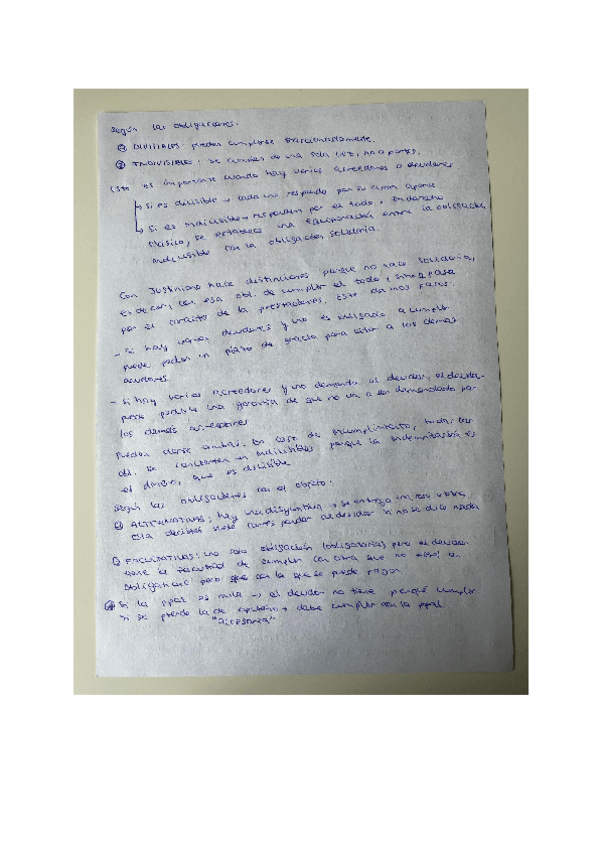 Según las obligaciones:
① DIVISIBLES pueden cumplirse fraccionadamente.
② INDIVISIBLES: se cumplen de una sola vez, no a partes.
Esto es importante cuando hay varios acreedores o deudores
↳ Si es divisible → cada uno responde por la
↳ Si es indivisible → responden por el todo. En derecho
clásico, se establece una equiparación entre la obligación
indivisible con la obligación solidaria.
Con Justiniano hace distinciones porque no nace solidaria,
es decir, con esa obl. de cumplir el todo, sino q pasa
por el carácter de la prestaciones. Esto da dos fases.
- Si hay varios deudores y uno es obligado a cumplir
puede pedir un plazo de gracia para citar a los demás
- Si hay varios acreedores y uno demanda al deudor, el
pedirle una garantía de que no va a ser demandado por
los demás acreedores
Pueden darse ambas. En caso de incumplimiento, todas las
obl. se convierten en porque la indemnización es
el dinero, que es divisible
Según las obligaciones con el objeto:
① ALTERNATIVAS: hay una disyuntiva → se entrega una cosa u otra.
Esta decisión suele corresponder al deudor si no se dice nada
② FACULTATIVAS: una sola obligación (obligatoria) pero el deudor
tiene la facultad de cumplir con otra que no está in
obligatione pero que con la que se puede pagar
Si la ppal es nula → el deudor no tiene porqué cumplir
si se pierde la de → debe cumplir con la ppal